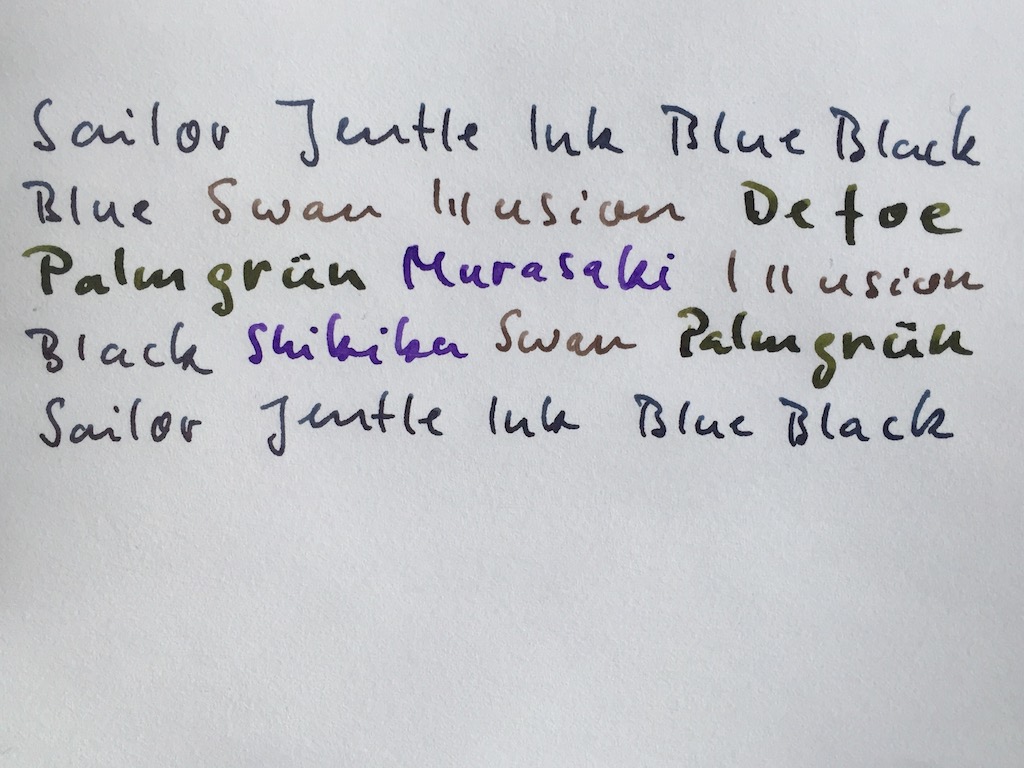 Sailor Jentle Ink Blue Black
Blue Swan Illusion Defoe
Palmgrün Murasaki Illusion
Black Shikiku Swan Palmgrün
Sailor Jentle Ink Blue Black